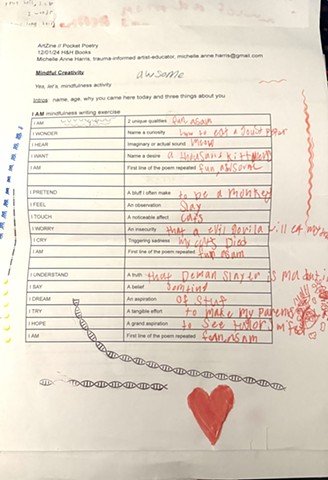 ArtZine // Pocket Poetry
12/01/24 H&H Books
Michelle Anne Harris, trauma-informed artist-educator, michelle.anne.harris@gmail.com
Mindful Creativity awsome
Yes, let's, mindfulness activity
Intros name, age, why you came here today and three things about you
I AM mindfulness writing exercise
I AM 2 unique qualities fun
I WONDER Name a curiosity how to eat a
I HEAR Imaginary or actual sound meow
I WANT Name a desire a thousand
I AM First line of the poem repeated fun
I PRETEND A bluff I often make to be a monkey
I FEEL An observation Slay
I TOUCH A noticeable affect cats
I WORRY An insecurity that a evil gorila will eat my
I CRY Triggering sadness my cats Died
I AM First line of the poem repeated fun
I UNDERSTAND A truth that Deman Slayer is
I SAY A belief
I DREAM An aspiration OF Stuf
I TRY A tangible effort to make my parents
I HOPE A grand aspiration to See
I AM First line of the poem repeated